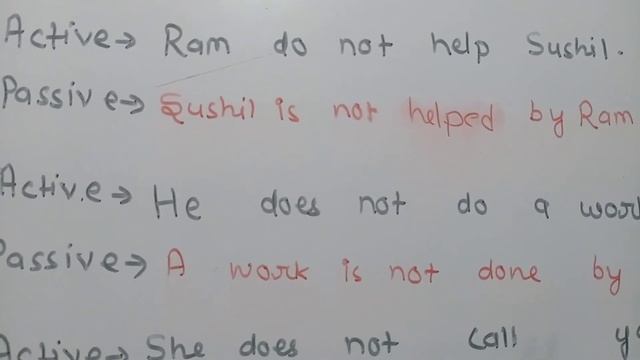 Active → Ram do not help Sushil.
Passive → Sushil is not helped by Ram
Active → He does not do a work
Passive → A work is not done by
Active → She does not call